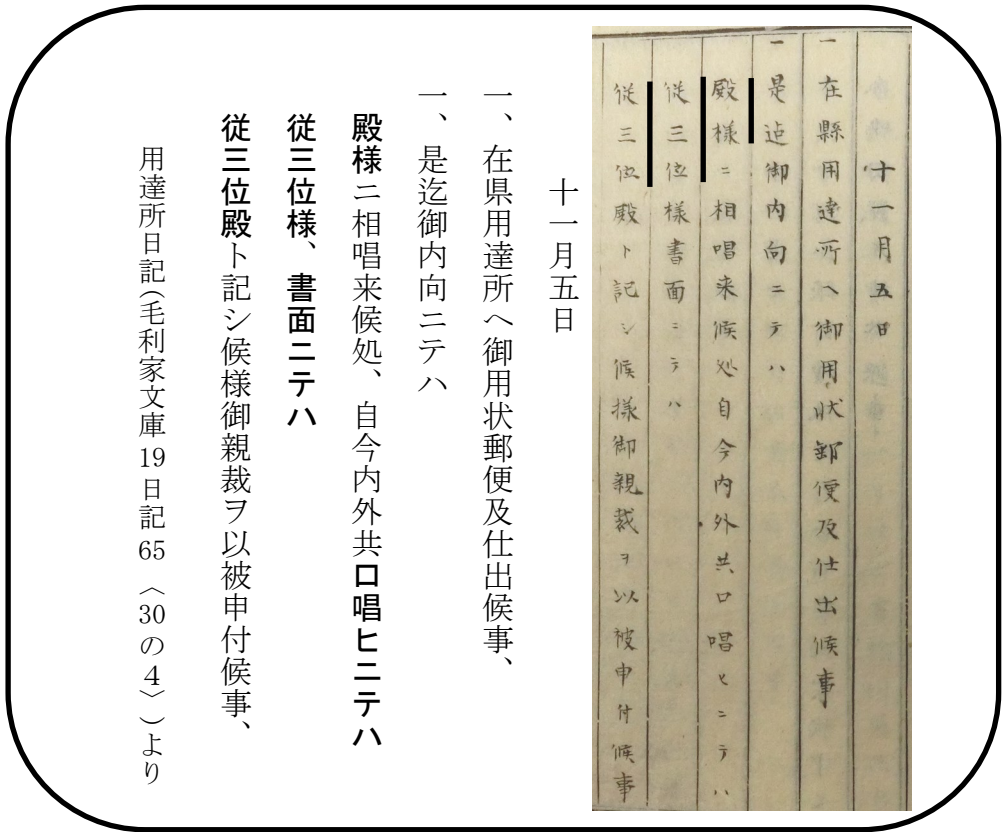 十一月五日
一在縣用達所へ御用状郵便及仕出候事
一是迠御内向ニテハ
殿様ニ相唱来候処自今内外共口唱ヒニテハ
従三位様書面ニテハ
従三位殿ト記シ候様御親裁ヲ以被申付候事
十一月五日
一、在県用達所へ御用状郵便及仕出候事、
一、是迄御内向ニテハ
殿様ニ相唱来候処、自今内外共口唱ヒニテハ
従三位様、書面ニテハ
従三位殿ト記シ候様御親裁ヲ以被申付候事、
用達所日記(毛利家文庫19日記65〈30の4〉)より